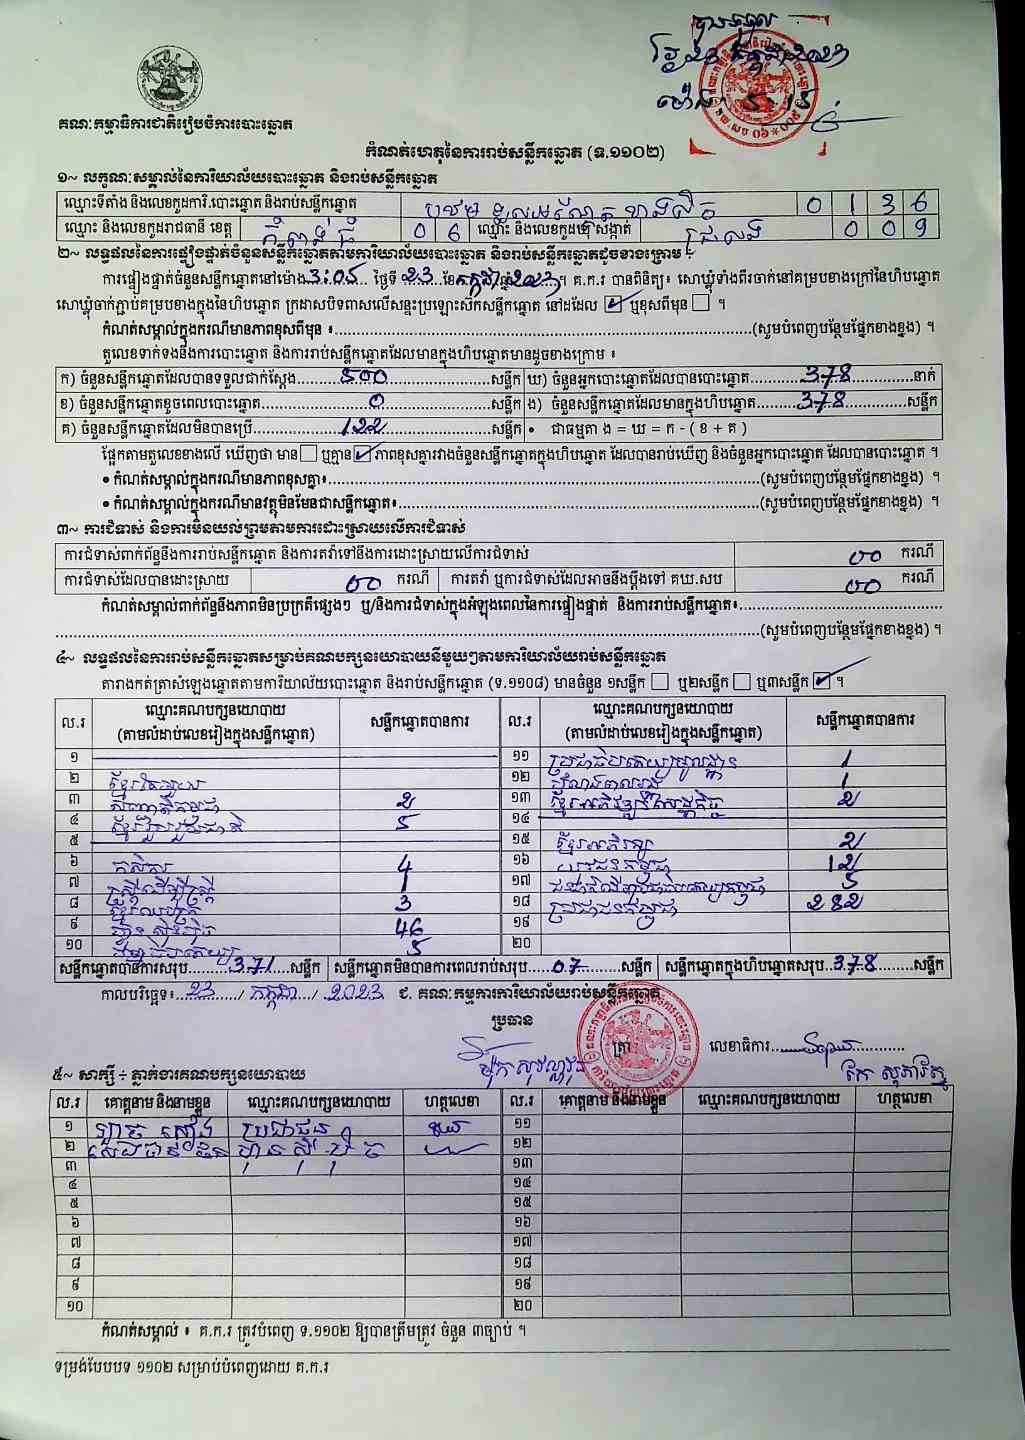 បានចូល
ថ្ងៃ 23 កក្កដា 2023
ម៉ោង 5:15
គណៈកម្មាធិការជាតិរៀបចំការបោះឆ្នោត
កំណត់ហេតុនៃការរាប់សន្លឹកឆ្នោត (ទ.១១០២)
១~ លក្ខណៈសម្គាល់នៃការិយាល័យបោះឆ្នោត និងរាប់សន្លឹកឆ្នោត
ឈ្មោះទីតាំង និងលេខកូដការិ.បោះឆ្នោត និងរាប់សន្លឹកឆ្នោត 0 1 3 6
ឈ្មោះ និងលេខកូដរាជធានី ខេត្ត កំពង់ធំ 0 6 ឈ្មោះ និងលេខកូដឃុំ សង្កាត់ ជ្រលង 0 0 9
២~ លទ្ធផលនៃការផ្ទៀងផ្ទាត់ចំនួនសន្លឹកឆ្នោតតាមការិយាល័យបោះឆ្នោត និងរាប់សន្លឹកឆ្នោតដូចខាងក្រោម ÷
ការផ្ទៀងផ្ទាត់ចំនួនសន្លឹកឆ្នោតនៅម៉ោង 3:05 ថ្ងៃទី 23 ខែ កក្កដា ឆ្នាំ 2023 ។ គ.ក.រ បានពិនិត្យ៖ សោឃ្លុំទាំងពីរចាក់នៅគម្របខាងក្រៅនៃហិបឆ្នោត
សោឃ្លុំចាក់ភ្ជាប់គម្របខាងក្នុងនៃហិបឆ្នោត ក្រដាសបិទពាសលើសន្ទះប្រឡោះសិកសន្លឹកឆ្នោត នៅដដែល ☑ ឬខុសពីមុន ☐ ។
កំណត់សម្គាល់ក្នុងករណីមានភាពខុសពីមុន ៖ (សូមបំពេញបន្ថែមផ្នែកខាងខ្នង) ។
តួលេខទាក់ទងនឹងការបោះឆ្នោត និងការរាប់សន្លឹកឆ្នោតដែលមានក្នុងហិបឆ្នោតមានដូចខាងក្រោម ៖
ក) ចំនួនសន្លឹកឆ្នោតដែលបានទទួលជាក់ស្តែង 500 សន្លឹក ឃ) ចំនួនអ្នកបោះឆ្នោតដែលបានបោះឆ្នោត 378 នាក់
ខ) ចំនួនសន្លឹកឆ្នោតខូចពេលបោះឆ្នោត 0 សន្លឹក ង) ចំនួនសន្លឹកឆ្នោតដែលមានក្នុងហិបឆ្នោត 378 សន្លឹក
គ) ចំនួនសន្លឹកឆ្នោតដែលមិនបានប្រើ 122 សន្លឹក • ជាធម្មតា ង = ឃ = ក - ( ខ + គ )
ផ្អែកតាមតួលេខខាងលើ ឃើញថា មាន ☐ ឬគ្មាន ☑ ភាពខុសគ្នារវាងចំនួនសន្លឹកឆ្នោតក្នុងហិបឆ្នោត ដែលបានរាប់ឃើញ និងចំនួនអ្នកបោះឆ្នោត ដែលបានបោះឆ្នោត ។
• កំណត់សម្គាល់ក្នុងករណីមានភាពខុសគ្នា៖ (សូមបំពេញបន្ថែមផ្នែកខាងខ្នង) ។
• កំណត់សម្គាល់ក្នុងករណីមានវត្ថុមិនមែនជាសន្លឹកឆ្នោត៖ (សូមបំពេញបន្ថែមផ្នែកខាងខ្នង) ។
៣~ ការជំទាស់ និងការមិនយល់ព្រមតាមការដោះស្រាយលើការជំទាស់
ការជំទាស់ពាក់ព័ន្ធនឹងការរាប់សន្លឹកឆ្នោត និងការតវ៉ាទៅនឹងការដោះស្រាយលើការជំទាស់ 00 ករណី
ការជំទាស់ដែលបានដោះស្រាយ 00 ករណី ការតវ៉ា ឬការជំទាស់ដែលអាចនឹងប្តឹងទៅ គឃ.សប 00 ករណី
កំណត់សម្គាល់ពាក់ព័ន្ធនឹងភាពមិនប្រក្រតីផ្សេងៗ ឬ/និងការជំទាស់ក្នុងអំឡុងពេលនៃការផ្ទៀងផ្ទាត់ និងការរាប់សន្លឹកឆ្នោត៖
(សូមបំពេញបន្ថែមផ្នែកខាងខ្នង) ។
៤~ លទ្ធផលនៃការរាប់សន្លឹកឆ្នោតសម្រាប់គណបក្សនយោបាយនីមួយៗតាមការិយាល័យរាប់សន្លឹកឆ្នោត
តារាងកត់ត្រាសំឡេងឆ្នោតតាមការិយាល័យបោះឆ្នោត និងរាប់សន្លឹកឆ្នោត (ទ.១១០៨) មានចំនួន ១សន្លឹក ☐ ឬ២សន្លឹក ☐ ឬ៣សន្លឹក ☑ ។
ល.រ ឈ្មោះគណបក្សនយោបាយ (តាមលំដាប់លេខរៀងក្នុងសន្លឹកឆ្នោត) សន្លឹកឆ្នោតបានការ ល.រ ឈ្មោះគណបក្សនយោបាយ (តាមលំដាប់លេខរៀងក្នុងសន្លឹកឆ្នោត) សន្លឹកឆ្នោតបានការ
១ ១១ ប្រជាធិបតេយ្យមូលដ្ឋាន 1
២ ខ្មែរតែមួយ ១២ 1
៣ សញ្ជាតិកម្ពុជា 2 ១៣ ខ្មែរអភិវឌ្ឍន៍សេដ្ឋកិច្ច 2
៤ ខ្មែររួបរួមជាតិ 5 ១៤
៥ ១៥ ខ្មែរអភិរក្ស 2
៦ កសិករ 4 ១៦ យុវជនកម្ពុជា 12
៧ ស្ត្រីដើម្បីស្ត្រី 1 ១៧ 5
៨ 3 ១៨ ប្រជាជនកម្ពុជា 282
៩ ហ្វ៊ុនស៊ិនប៉ិច 46 ១៩
១០ 5 ២០
សន្លឹកឆ្នោតបានការសរុប 371 សន្លឹក សន្លឹកឆ្នោតមិនបានការពេលរាប់សរុប 07 សន្លឹក សន្លឹកឆ្នោតក្នុងហិបឆ្នោតសរុប 378 សន្លឹក
កាលបរិច្ឆេទ៖ 23 / កក្កដា / 2023 ជ. គណៈកម្មការការិយាល័យរាប់សន្លឹកឆ្នោត
ប្រធាន ត្រា លេខាធិការ
៥~ សាក្សី ÷ ភ្នាក់ងារគណបក្សនយោបាយ
ល.រ គោត្តនាម និងនាមខ្លួន ឈ្មោះគណបក្សនយោបាយ ហត្ថលេខា ល.រ គោត្តនាម និងនាមខ្លួន ឈ្មោះគណបក្សនយោបាយ ហត្ថលេខា
១ ប្រជាជន ១១
២ ហ៊្វុនស៊ិនប៉ិច ១២
៣ ១៣
៤ ១៤
៥ ១៥
៦ ១៦
៧ ១៧
៨ ១៨
៩ ១៩
១០ ២០
កំណត់សម្គាល់ ៖ គ.ក.រ ត្រូវបំពេញ ទ.១១០២ ឱ្យបានត្រឹមត្រូវ ចំនួន ៣ច្បាប់ ។
ទម្រង់បែបបទ ១១០២ សម្រាប់បំពេញដោយ គ.ក.រ